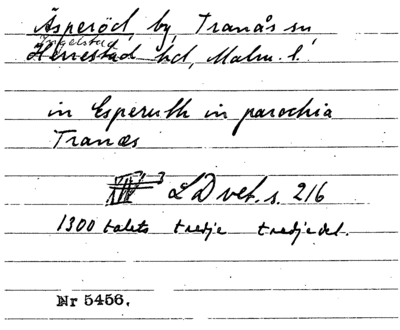 Äsperöd, by, Tranås sn,
Ingelstad
Herrestad hd, Malm. l.
in Esperuth in parochia
Tranæs
3 LD vet. s. 216
1300 talets tredje tredjedel.
Nr 5456.